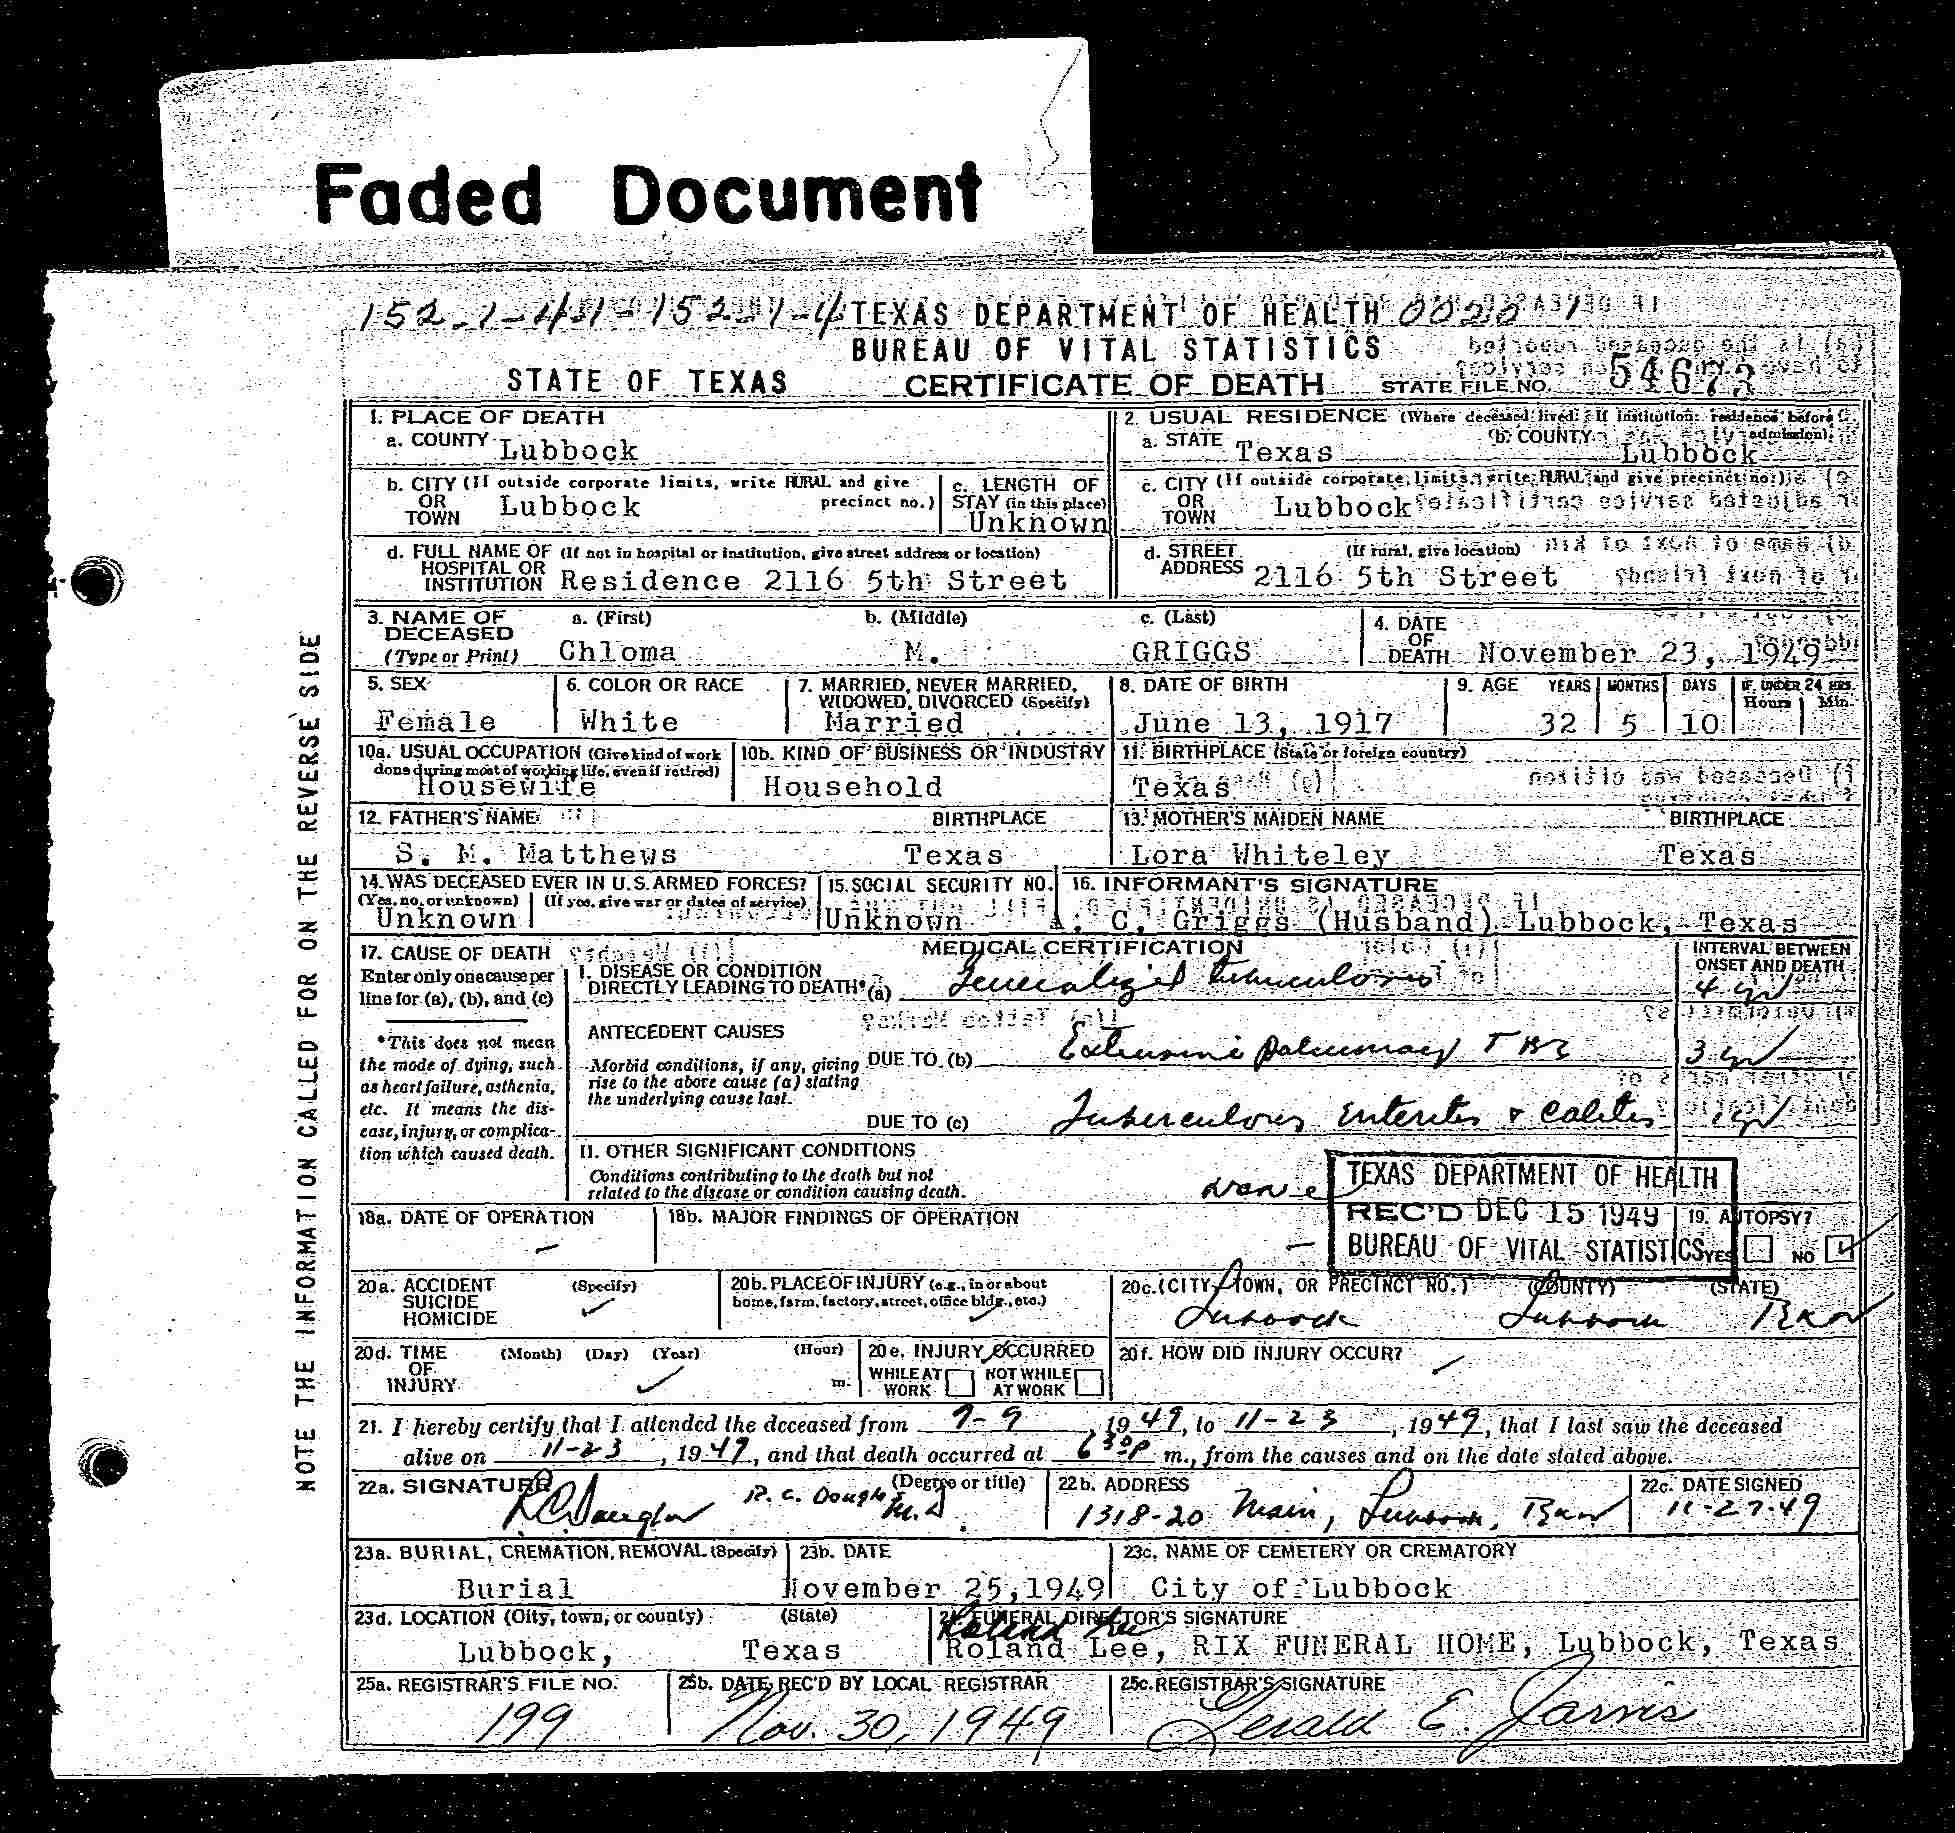 Faded Document
TEXAS DEPARTMENT OF HEALTH
BUREAU OF VITAL STATISTICS
STATE OF TEXAS CERTIFICATE OF DEATH STATE FILE NO. 54673
1. PLACE OF DEATH
a. COUNTY Lubbock
2. USUAL RESIDENCE (Where deceased lived. If institution: residence before admission).
a. STATE Texas b. COUNTY Lubbock
b. CITY (If outside corporate limits, write RURAL and give precinct no.) OR TOWN Lubbock
c. LENGTH OF STAY (in this place) Unknown
c. CITY (If outside corporate limits, write RURAL and give precinct no.) OR TOWN Lubbock
d. FULL NAME OF HOSPITAL OR INSTITUTION (If not in hospital or institution, give street address or location) Residence 2116 5th Street
d. STREET ADDRESS (If rural, give location) 2116 5th Street
3. NAME OF DECEASED (Type or Print) a. (First) Chloma b. (Middle) M. c. (Last) GRIGGS
4. DATE OF DEATH November 23, 1949
5. SEX Female
6. COLOR OR RACE White
7. MARRIED, NEVER MARRIED, WIDOWED, DIVORCED (Specify) Married
8. DATE OF BIRTH June 13, 1917
9. AGE YEARS 32 MONTHS 5 DAYS 10 IF UNDER 24 HRS. Hours Min.
10a. USUAL OCCUPATION (Give kind of work done during most of working life, even if retired) Housewife
10b. KIND OF BUSINESS OR INDUSTRY Household
11. BIRTHPLACE (State or foreign country) Texas
12. FATHER'S NAME S. M. Matthews BIRTHPLACE Texas
13. MOTHER'S MAIDEN NAME Lora Whiteley BIRTHPLACE Texas
14. WAS DECEASED EVER IN U.S. ARMED FORCES? (Yes, no, or unknown) Unknown (If yes, give war or dates of service)
15. SOCIAL SECURITY NO. Unknown
16. INFORMANT'S SIGNATURE A. C. Griggs (Husband) Lubbock, Texas
17. CAUSE OF DEATH
Enter only one cause per line for (a), (b), and (c)
*This does not mean the mode of dying, such as heart failure, asthenia, etc. It means the disease, injury, or complication which caused death.
MEDICAL CERTIFICATION
INTERVAL BETWEEN ONSET AND DEATH
I. DISEASE OR CONDITION DIRECTLY LEADING TO DEATH* (a) Generalized tuberculosis 4 yr
ANTECEDENT CAUSES
Morbid conditions, if any, giving rise to the above cause (a) stating the underlying cause last.
DUE TO (b) Extensive pulmonary TBC 3 yr
DUE TO (c) Tuberculous enteritis & colitis 1 yr
II. OTHER SIGNIFICANT CONDITIONS
Conditions contributing to the death but not related to the disease or condition causing death. none
TEXAS DEPARTMENT OF HEALTH
REC'D DEC 15 1949
BUREAU OF VITAL STATISTICS
18a. DATE OF OPERATION –
18b. MAJOR FINDINGS OF OPERATION –
19. AUTOPSY? YES NO ✓
20a. ACCIDENT SUICIDE HOMICIDE (Specify) ✓
20b. PLACE OF INJURY (e.g., in or about home, farm, factory, street, office bldg., etc.) ✓
20c. (CITY, TOWN, OR PRECINCT NO.) (COUNTY) (STATE)
Lubbock Lubbock Texas
20d. TIME OF INJURY (Month) (Day) (Year) (Hour) m. ✓
20e. INJURY OCCURRED WHILE AT WORK NOT WHILE AT WORK
20f. HOW DID INJURY OCCUR? ✓
21. I hereby certify that I attended the deceased from 9-9 1949, to 11-23, 1949, that I last saw the deceased
alive on 11-23, 1949, and that death occurred at 6 30 P m., from the causes and on the date stated above.
22a. SIGNATURE (Degree or title) M.D.
22b. ADDRESS 1318-20 Main, Lubbock, Texas
22c. DATE SIGNED 11-27-49
23a. BURIAL, CREMATION, REMOVAL (Specify) Burial
23b. DATE November 25, 1949
23c. NAME OF CEMETERY OR CREMATORY City of Lubbock
23d. LOCATION (City, town, or county) (State) Lubbock, Texas
24. FUNERAL DIRECTOR'S SIGNATURE Roland Lee
Roland Lee, RIX FUNERAL HOME, Lubbock, Texas
25a. REGISTRAR'S FILE NO. 199
25b. DATE REC'D BY LOCAL REGISTRAR Nov. 30, 1949
25c. REGISTRAR'S SIGNATURE Gerald E. Jarvis
NOTE THE INFORMATION CALLED FOR ON THE REVERSE SIDE